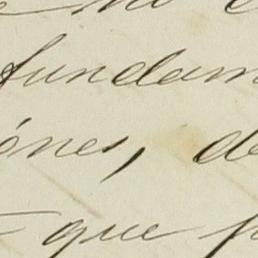 no
fundam
ónes, de
que